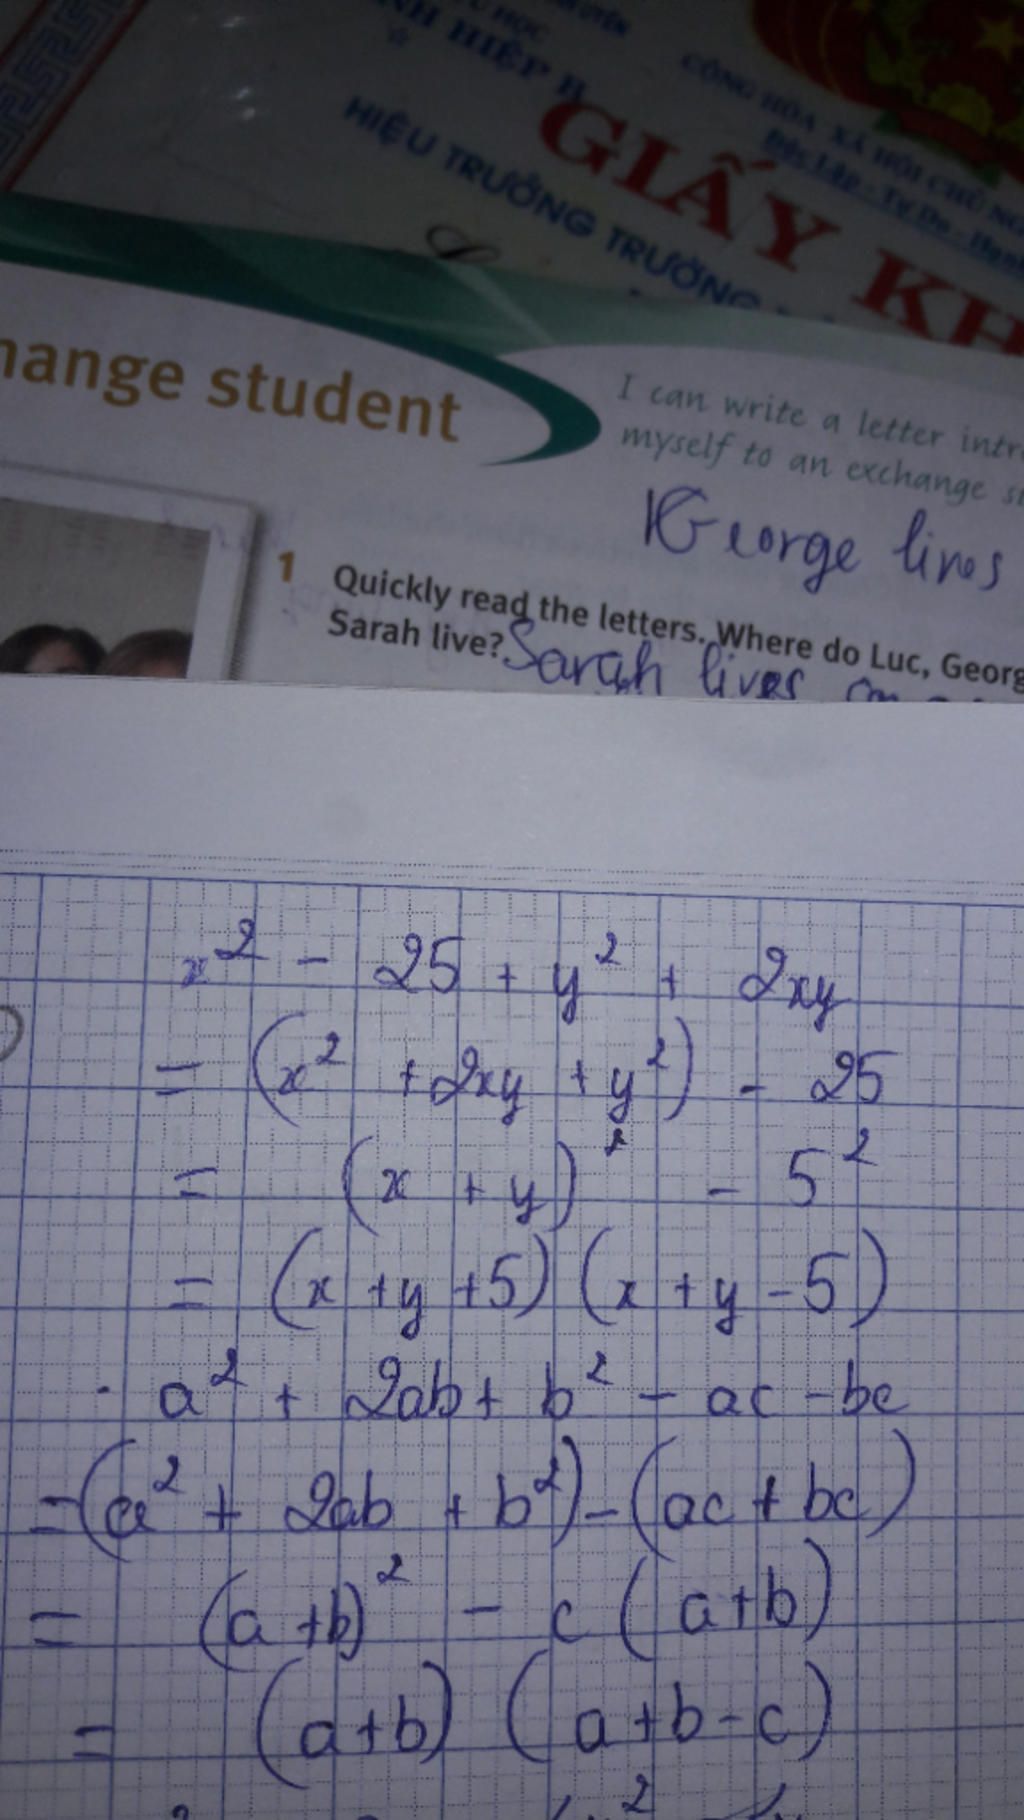 HIỆP B
CỘNG HÒA XÃ HỘI CHỦ
Độc Lập - Tự Do -
GIẤY KH
HIỆU TRƯỞNG TRƯỜNG
hange student
I can write a letter intr
myself to an exchange s
George lives
1 Quickly read the letters. Where do Luc, Georg
Sarah live? Sarah lives
x² - 25 + y² + 2xy
= (x² + 2xy + y²) - 25
= (x + y)² - 5²
= (x + y + 5) (x + y - 5)
. a² + 2ab + b² - ac - bc
= (a² + 2ab + b²) - (ac + bc)
= (a + b)² - c (a + b)
= (a + b) (a + b - c)